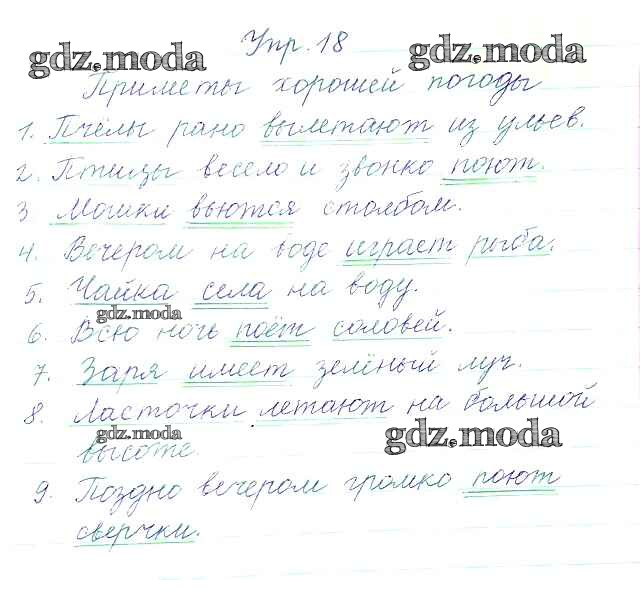 Упр. 18
gdz.moda gdz.moda
Приметы хорошей погоды
1. Пчёлы рано вылетают из ульев.
2. Птицы весело и звонко поют.
3. Мошки вьются столбом.
4. Вечером на воде играет рыба.
5. Чайка села на воду.
gdz.moda
6. Всю ночь поёт соловей.
7. Заря имеет зелёный луч.
8. Ласточки летают на большой
gdz.moda gdz.moda
высоте.
9. Поздно вечером громко поют
сверчки.